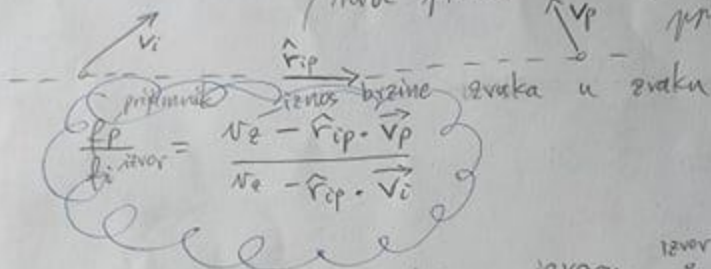 v⃗i r̂ip v⃗p
prijemnik iznos brzine zvuka u zraku
fp / fi izvor = vz − r̂ip · v⃗p / vz − r̂ip · v⃗i
izvor